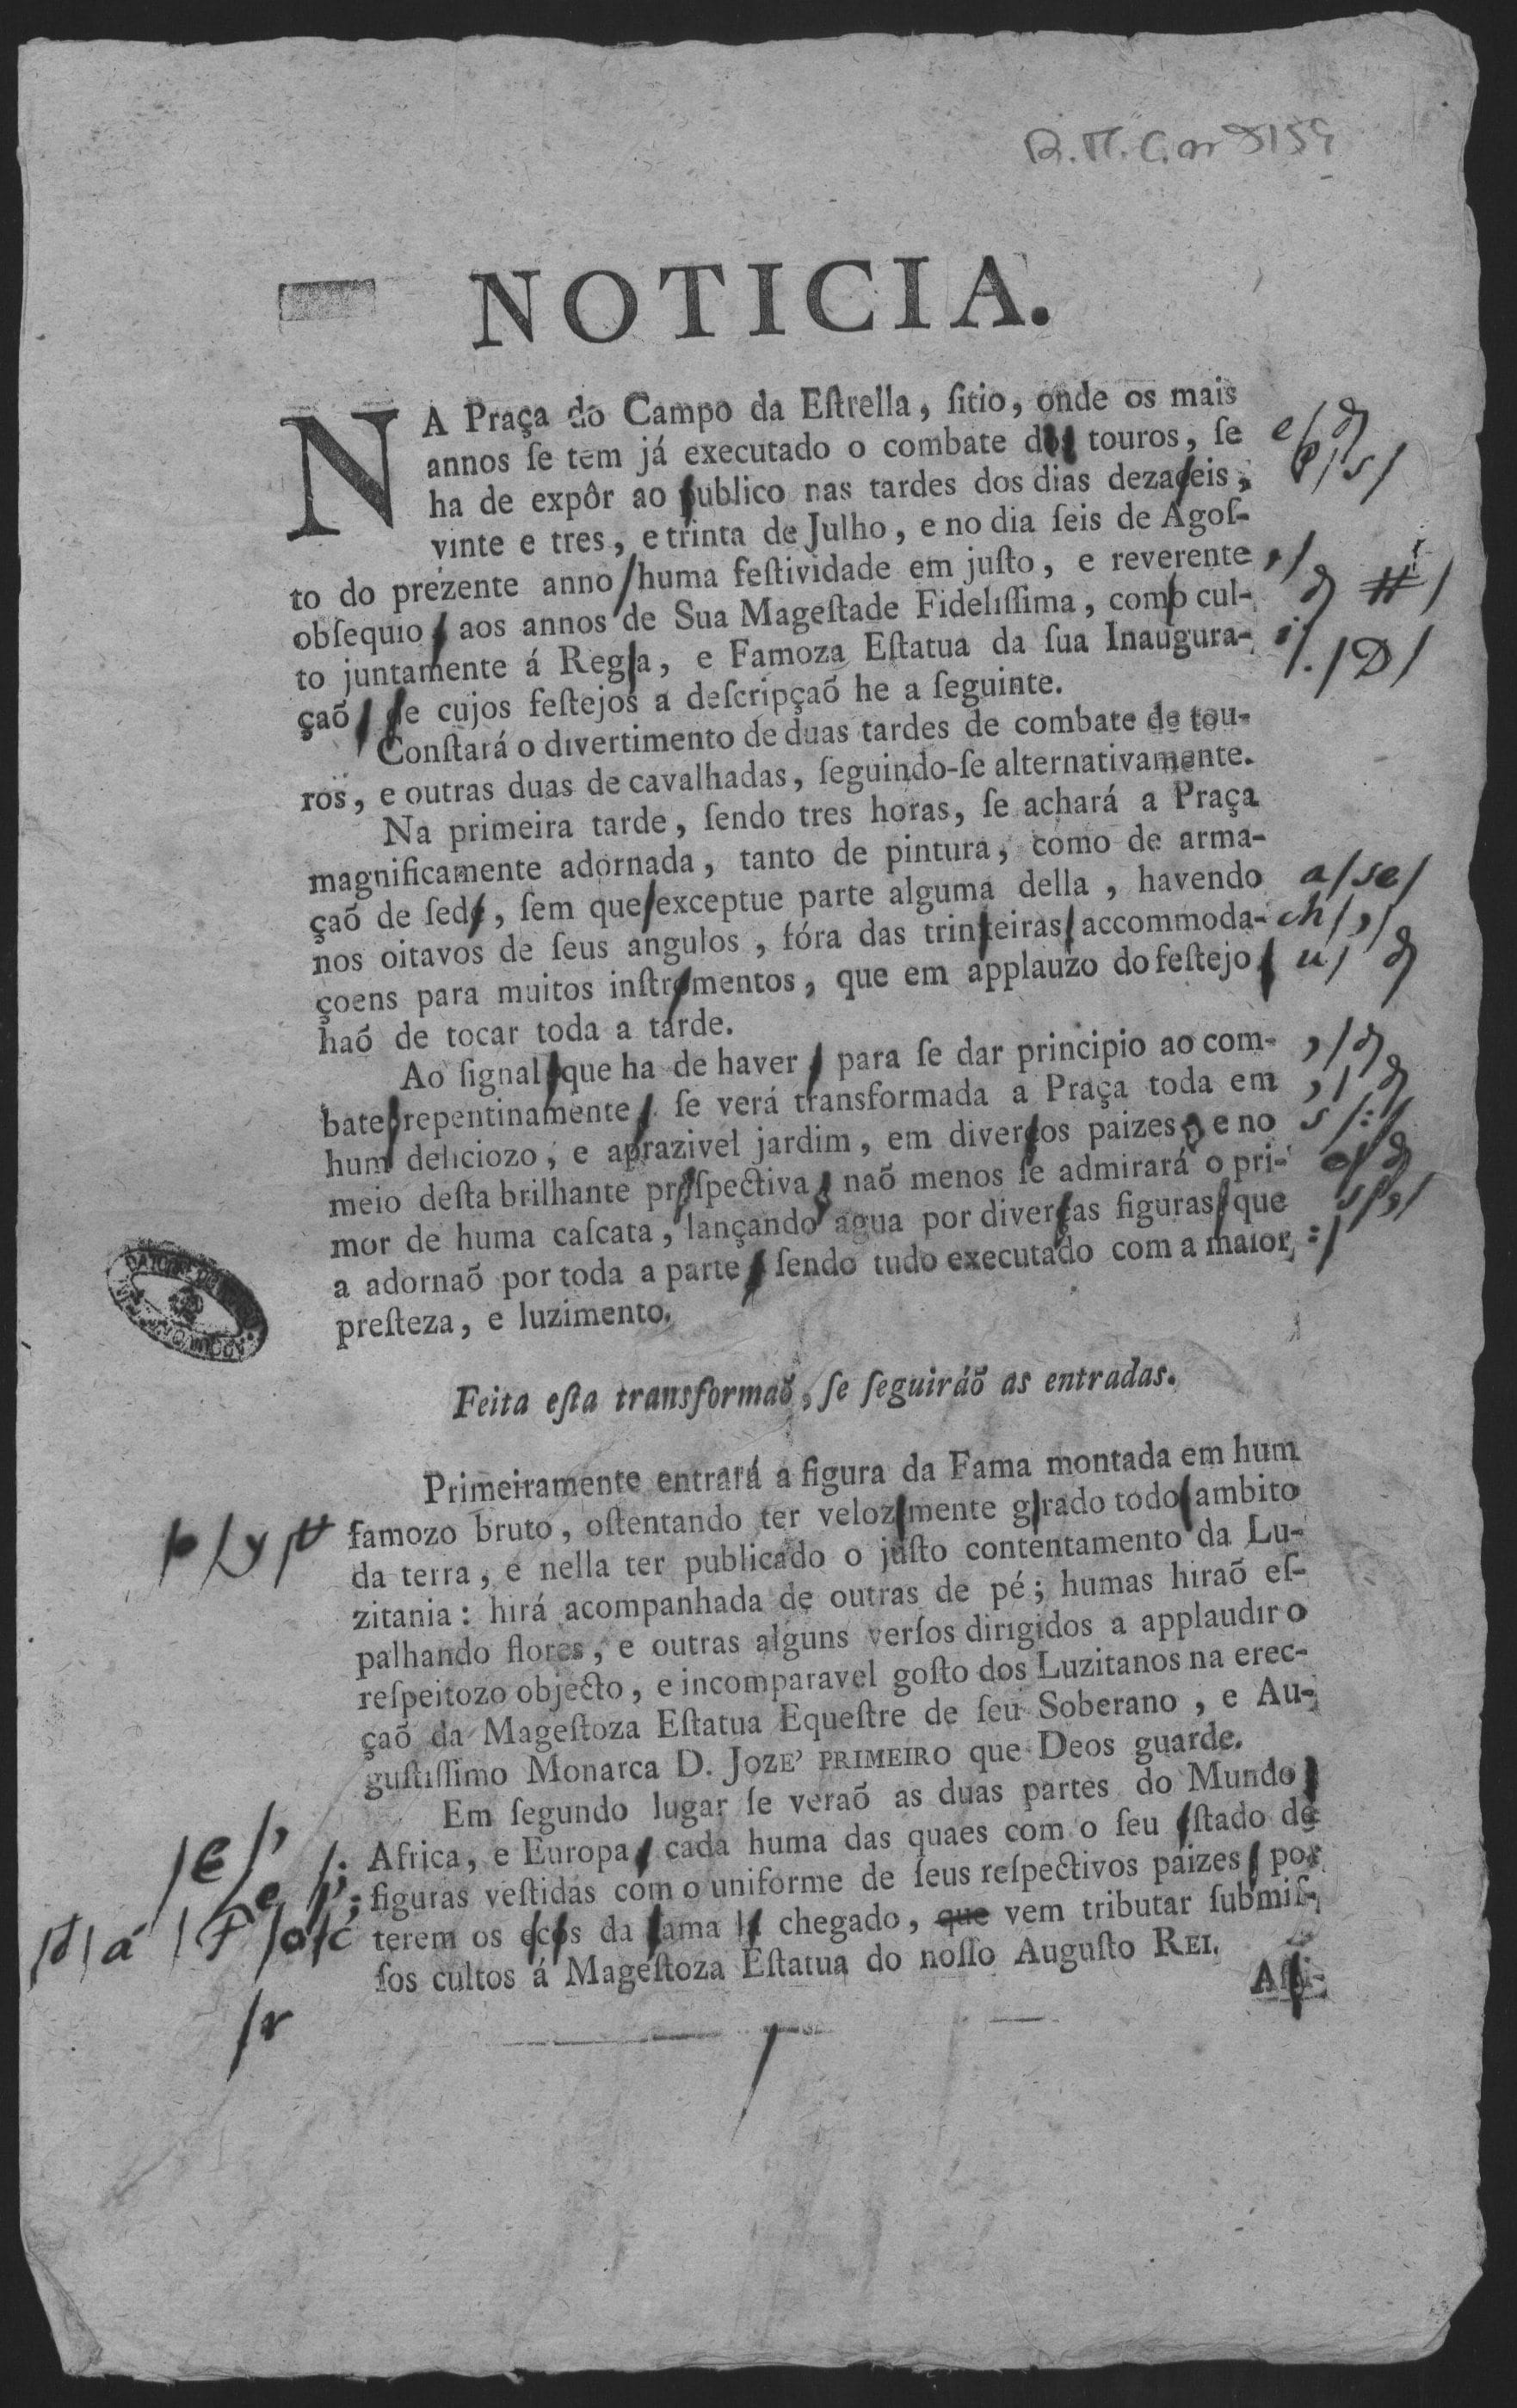 NOTICIA.
NA Praça do Campo da Eſtrella, ſitio, onde os mais
annos ſe tem já executado o combate dos touros, ſe
ha de expôr ao publico nas tardes dos dias dezaceis,
vinte e tres, e trinta de Julho, e no dia ſeis de Agoſ-
to do prezente anno huma feſtividade em juſto, e reverente
obſequio, aos annos de Sua Mageſtade Fideliſſima, como cul-
to juntamente á Regia, e Famoza Eſtatua da ſua Inaugura-
çaõ, de cujos feſtejos a deſcripçaõ he a ſeguinte.
Conſtará o divertimento de duas tardes de combate de tou-
ros, e outras duas de cavalhadas, ſeguindo-ſe alternativamente.
Na primeira tarde, ſendo tres horas, ſe achará a Praça
magnificamente adornada, tanto de pintura, como de arma-
çaõ de ſede, ſem que exceptue parte alguma della, havendo
nos oitavos de ſeus angulos, fóra das trinteiras accommoda-
çoens para muitos inſtromentos, que em applauzo do feſtejo,
haõ de tocar toda a tarde.
Ao ſignal que ha de haver, para ſe dar principio ao com-
bate repentinamente, ſe verá transformada a Praça toda em
hum deliciozo, e aprazivel jardim, em diverços paizes, e no
meio deſta brilhante proſpectiva, naõ menos ſe admirará o pri-
mor de huma caſcata, lançando agua por diverças figuras que
a adornaõ por toda a parte, ſendo tudo executado com a maior
preſteza, e luzimento.
Feita eſta transformaõ, ſe ſeguiráõ as entradas.
Primeiramente entrará a figura da Fama montada em hum
famozo bruto, oſtentando ter velozmente girado todo ambito
da terra, e nella ter publicado o juſto contentamento da Lu-
zitania: hirá acompanhada de outras de pé; humas hiraõ eſ-
palhando flores, e outras alguns verſos dirigidos a applaudir o
reſpeitozo objecto, e incomparavel goſto dos Luzitanos na erec-
çaõ da Mageſtoza Eſtatua Equeſtre de ſeu Soberano, e Au-
guſtiſſimo Monarca D. JOZE' PRIMEIRO que Deos guarde.
Em ſegundo lugar ſe veraõ as duas partes do Mundo,
Africa, e Europa, cada huma das quaes com o ſeu eſtado de
figuras veſtidas com o uniforme de ſeus reſpectivos paizes, por
terem os ecos da fama lá chegado, que vem tributar ſubmiſ-
ſos cultos á Mageſtoza Eſtatua do noſſo Auguſto REI.
Aſſi-